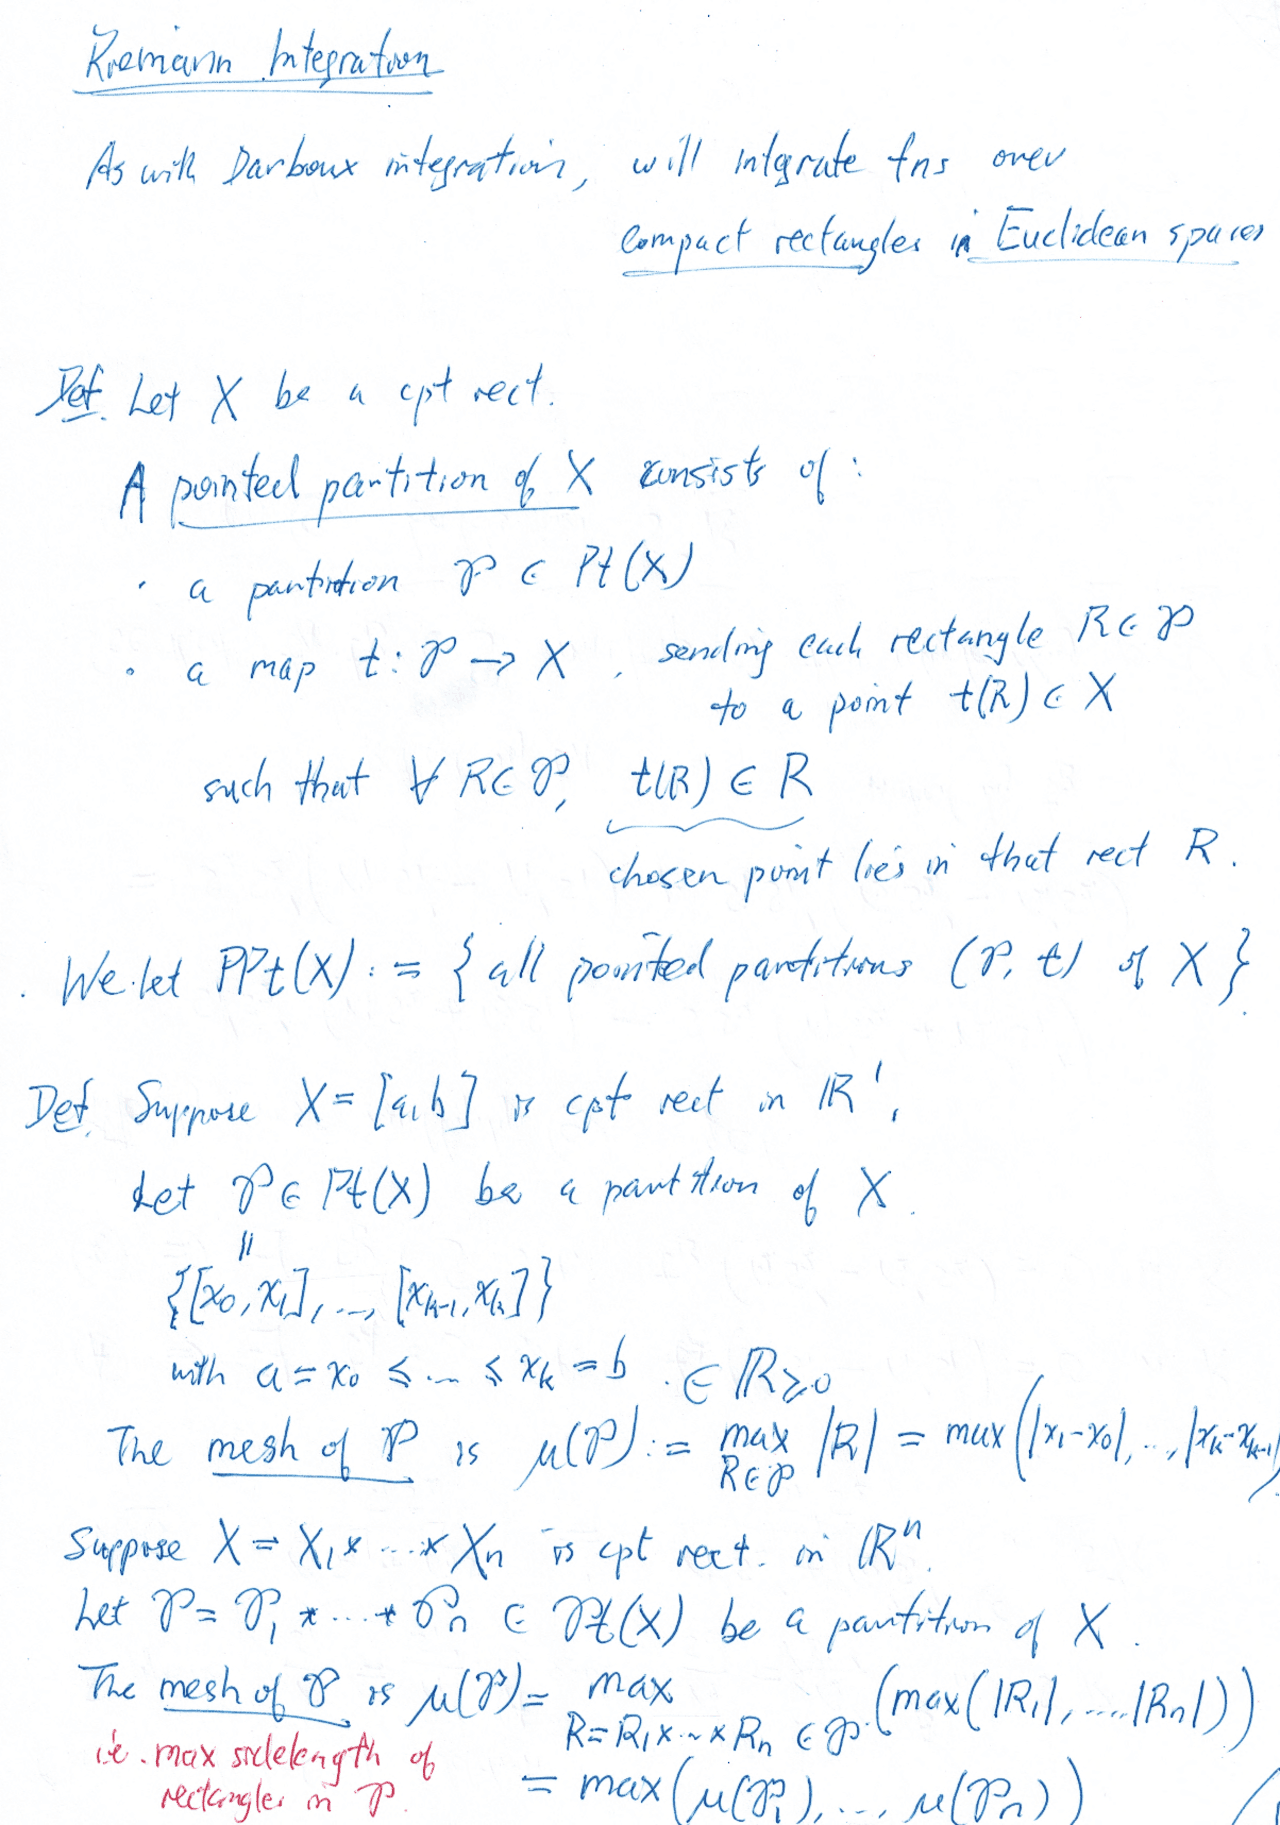 Riemann Integration
As with Darboux integration, will integrate fns over
compact rectangles in Euclidean spaces
Def. Let X be a cpt rect.
A pointed partition of X consists of :
· a partition 𝒫 ∈ Pt(X)
· a map t : 𝒫 → X , sending each rectangle R ∈ 𝒫
to a point t(R) ∈ X
such that ∀ R ∈ 𝒫, t(R) ∈ R
chosen point lies in that rect R.
We let PPt(X) := { all pointed partitions (𝒫, t) of X }.
Def. Suppose X = [a, b] is cpt rect in ℝ¹,
Let 𝒫 ∈ Pt(X) be a partition of X.
||
{[x₀, x₁], ..., [xₖ₋₁, xₖ]}
with a = x₀ ≤ ... ≤ xₖ = b . ∈ ℝ≥0
The mesh of 𝒫 is μ(𝒫) := max |R| = max(|x₁-x₀|, ..., |xₖ-xₖ₋₁|)
R∈𝒫
Suppose X = X₁ × ... × Xₙ is cpt rect. in ℝⁿ.
Let 𝒫 = 𝒫₁ * ... * 𝒫ₙ ∈ Pt(X) be a partition of X.
The mesh of 𝒫 is μ(𝒫) = max (max(|R₁|, ..., |Rₙ|))
R = R₁ × ... × Rₙ ∈ 𝒫
i.e. max sidelength of
rectangles in 𝒫.
= max(μ(𝒫₁), ..., μ(𝒫ₙ))